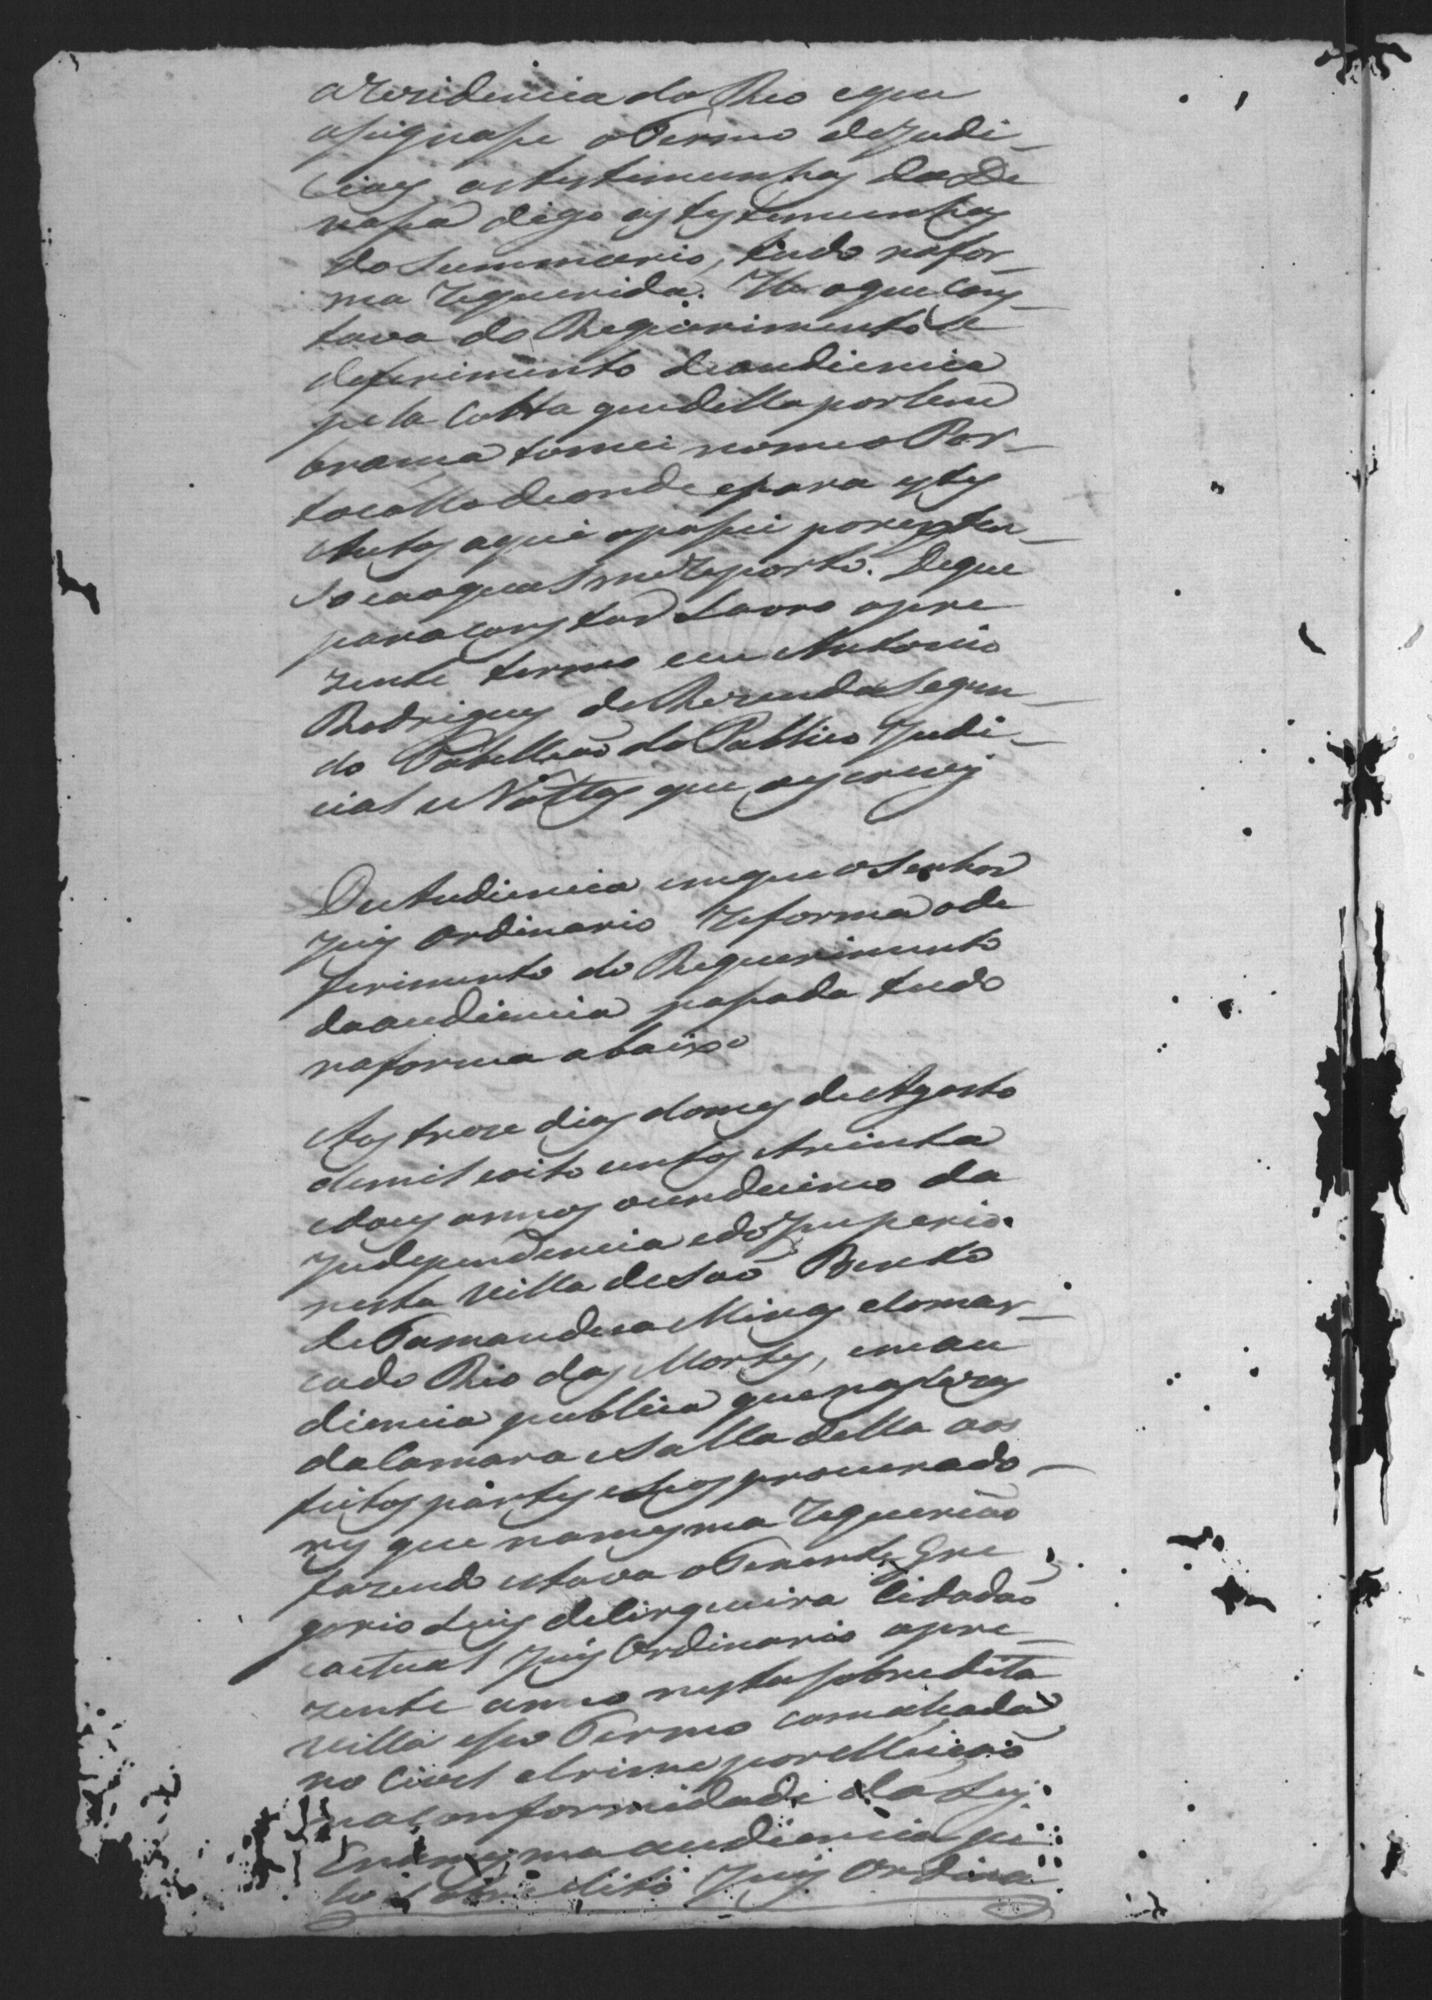 a rezidencia do Reo e que
asignase o Termo de Judi-
ciaes as testimunhas da De
vasa digo as testemunhas
do Summario, tudo na for-
ma requerida. He o que cons-
tava do Requirimento e
deferimento de audiencia
pela Cotta que della por lem
brança tomei no meo Por-
tocollo de onde e para estes
Autos aqui o pasei por exten-
so e ao qual me reporto. De que
para constar Lavro o pre
zente termo eu Antonio
Rodrigues de Rezenda Segun-
do Tabelliaõ do Publico Judi-
cial e Nottas que o escrevi

Da Audiencia em que o Senhor
Juis Ordinario reforma o de
ferimento do Requerimento
da audiencia pasada tudo
na forma abaixo

Aos treze dias do mes de Agosto
de mil e oito centos e trinta
e dous annos o undecimo da
Independencia e do Imperio.
nesta Villa de Saõ Bento
de Tamandua Minas e Comar-
ca do Rio das Mortes, em au
diencia publica que nas cazas
da Camara e Salla della aos
feitos partes e seos procurado-
res que na mesma requeriaõ
fazendo estava o Tenente Gre
gorio Luis de Cirqueira Cidadaõ
e actual Juis Ordinario o pre-
zente anno nesta sobredita
Villa e seo Termo com alsada
no Civel e Crime por Elleiçaõ
na Conformidade da Ley.
E na mesma audiencia pe
lo sobredito Juis Ordina